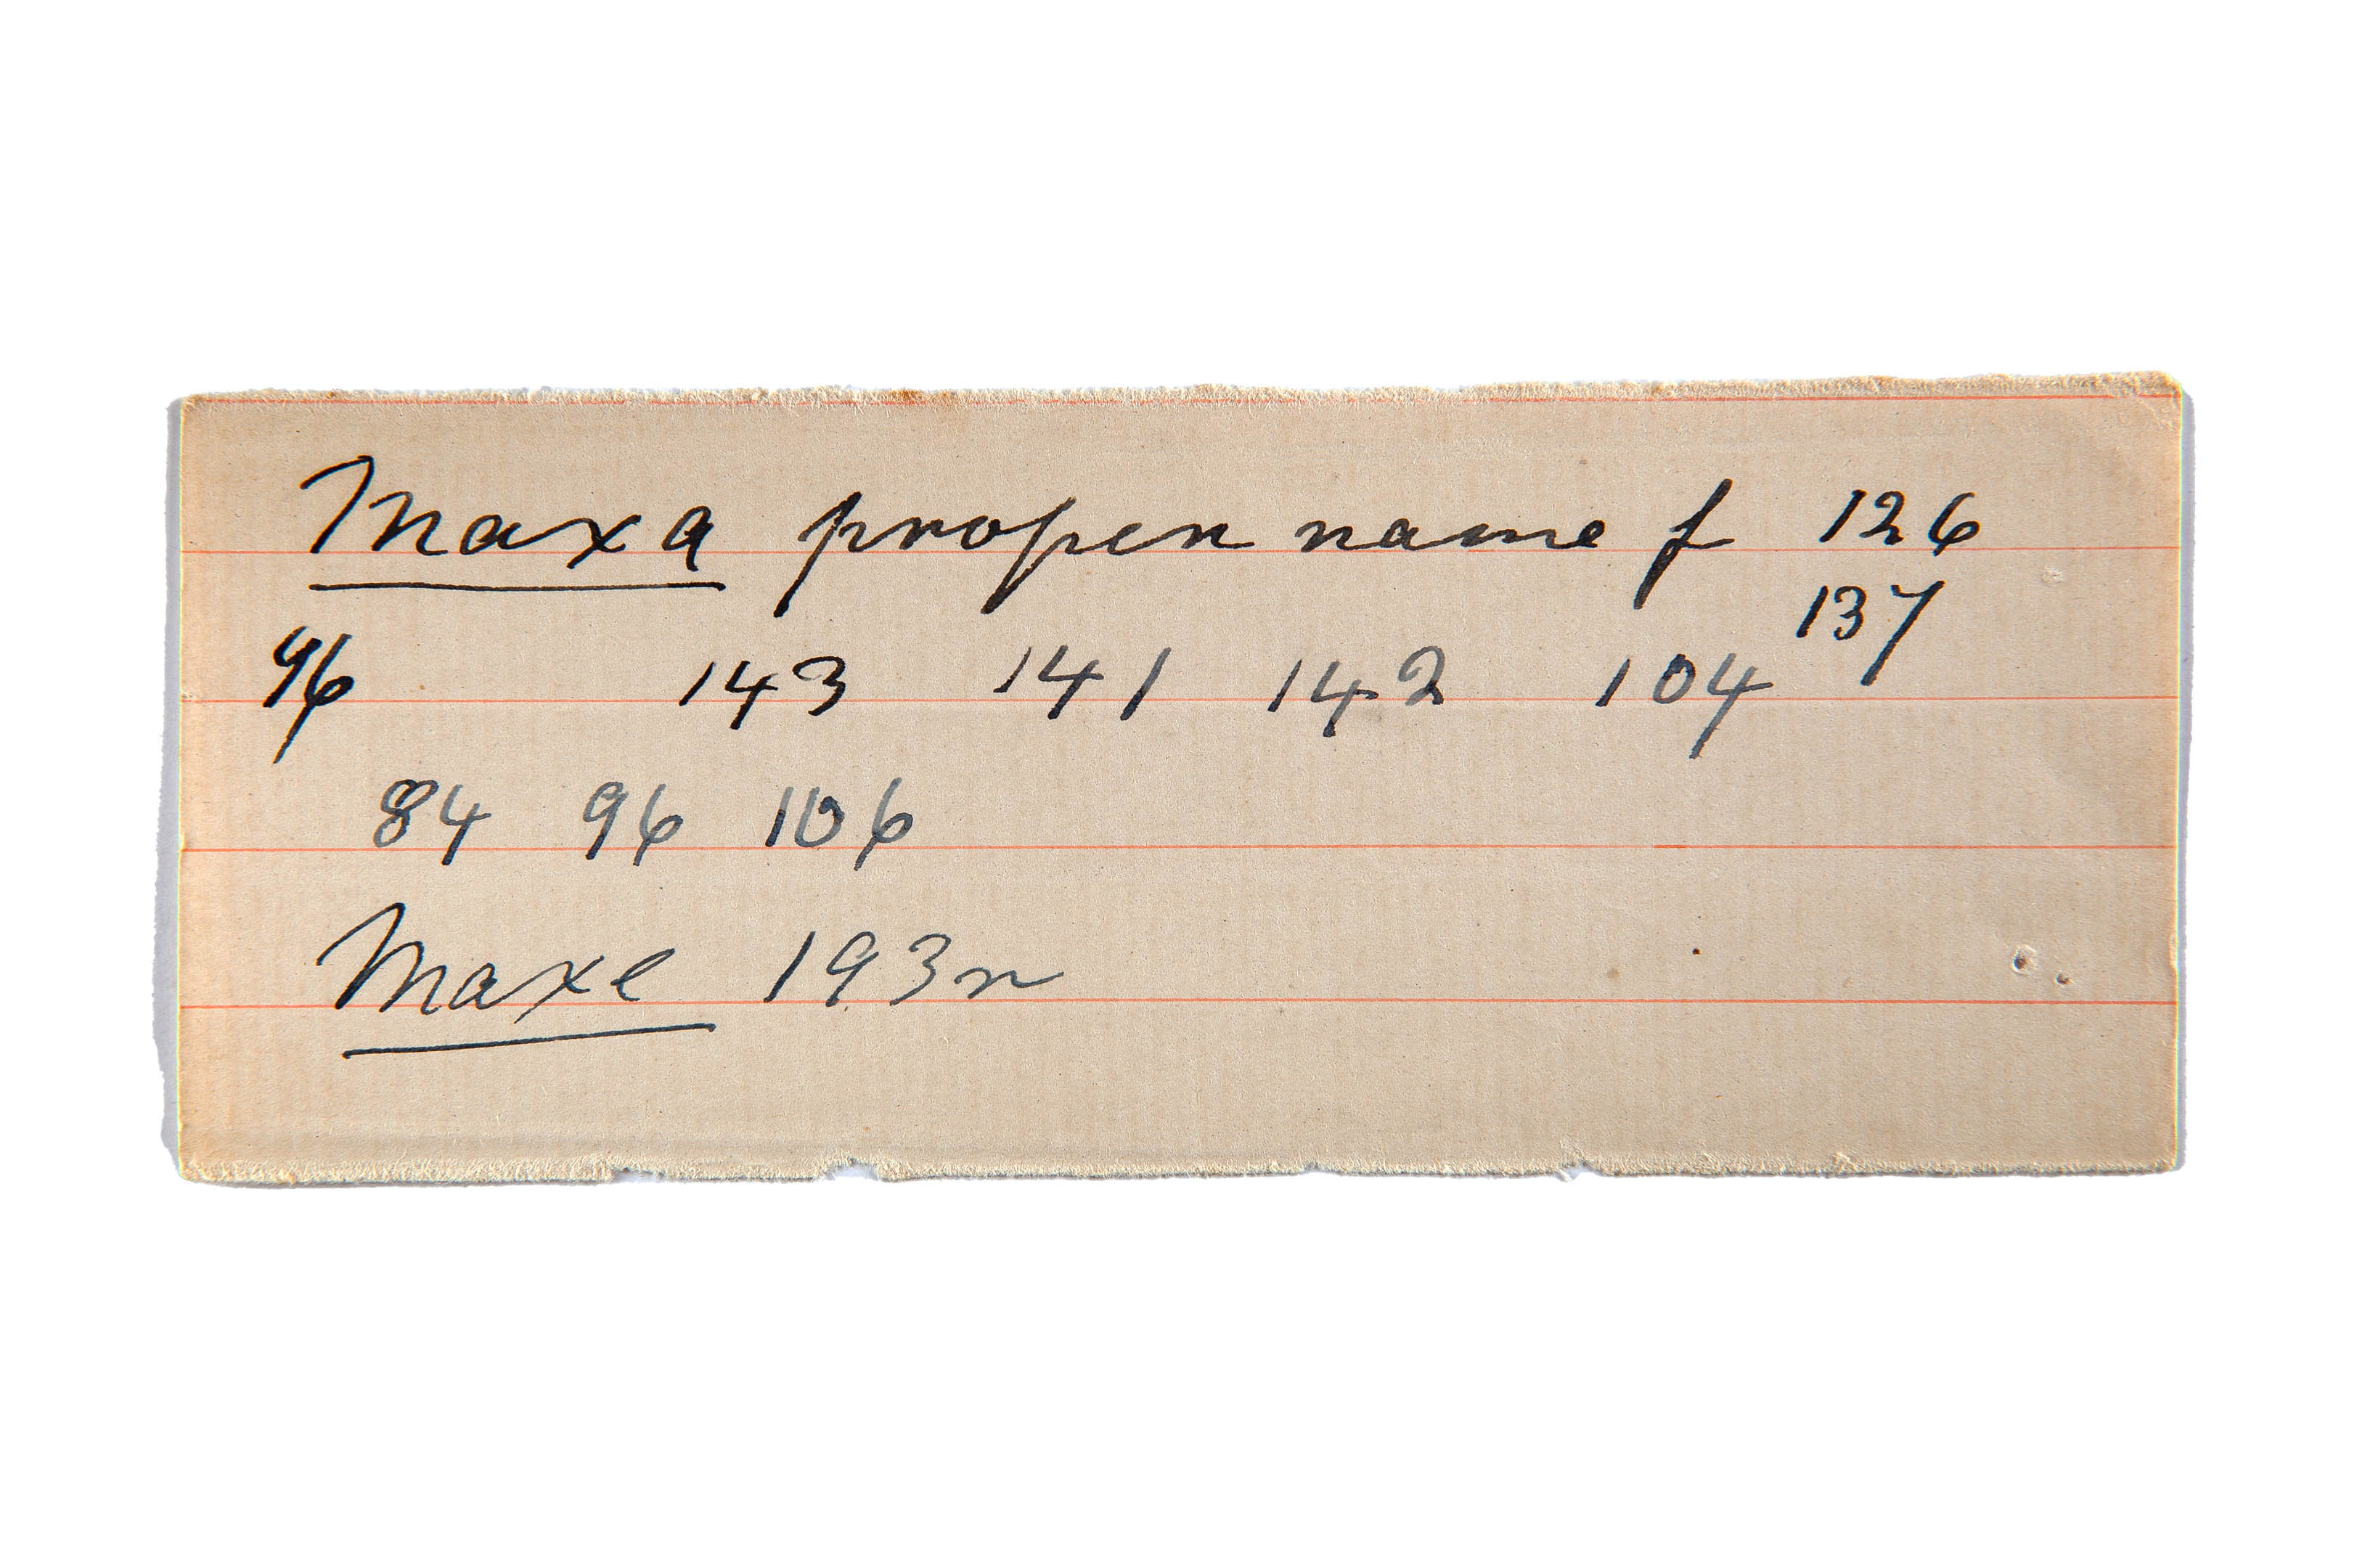 Maxa proper name f 126
137
96 143 141 142 104
84 96 106
Maxe 193n